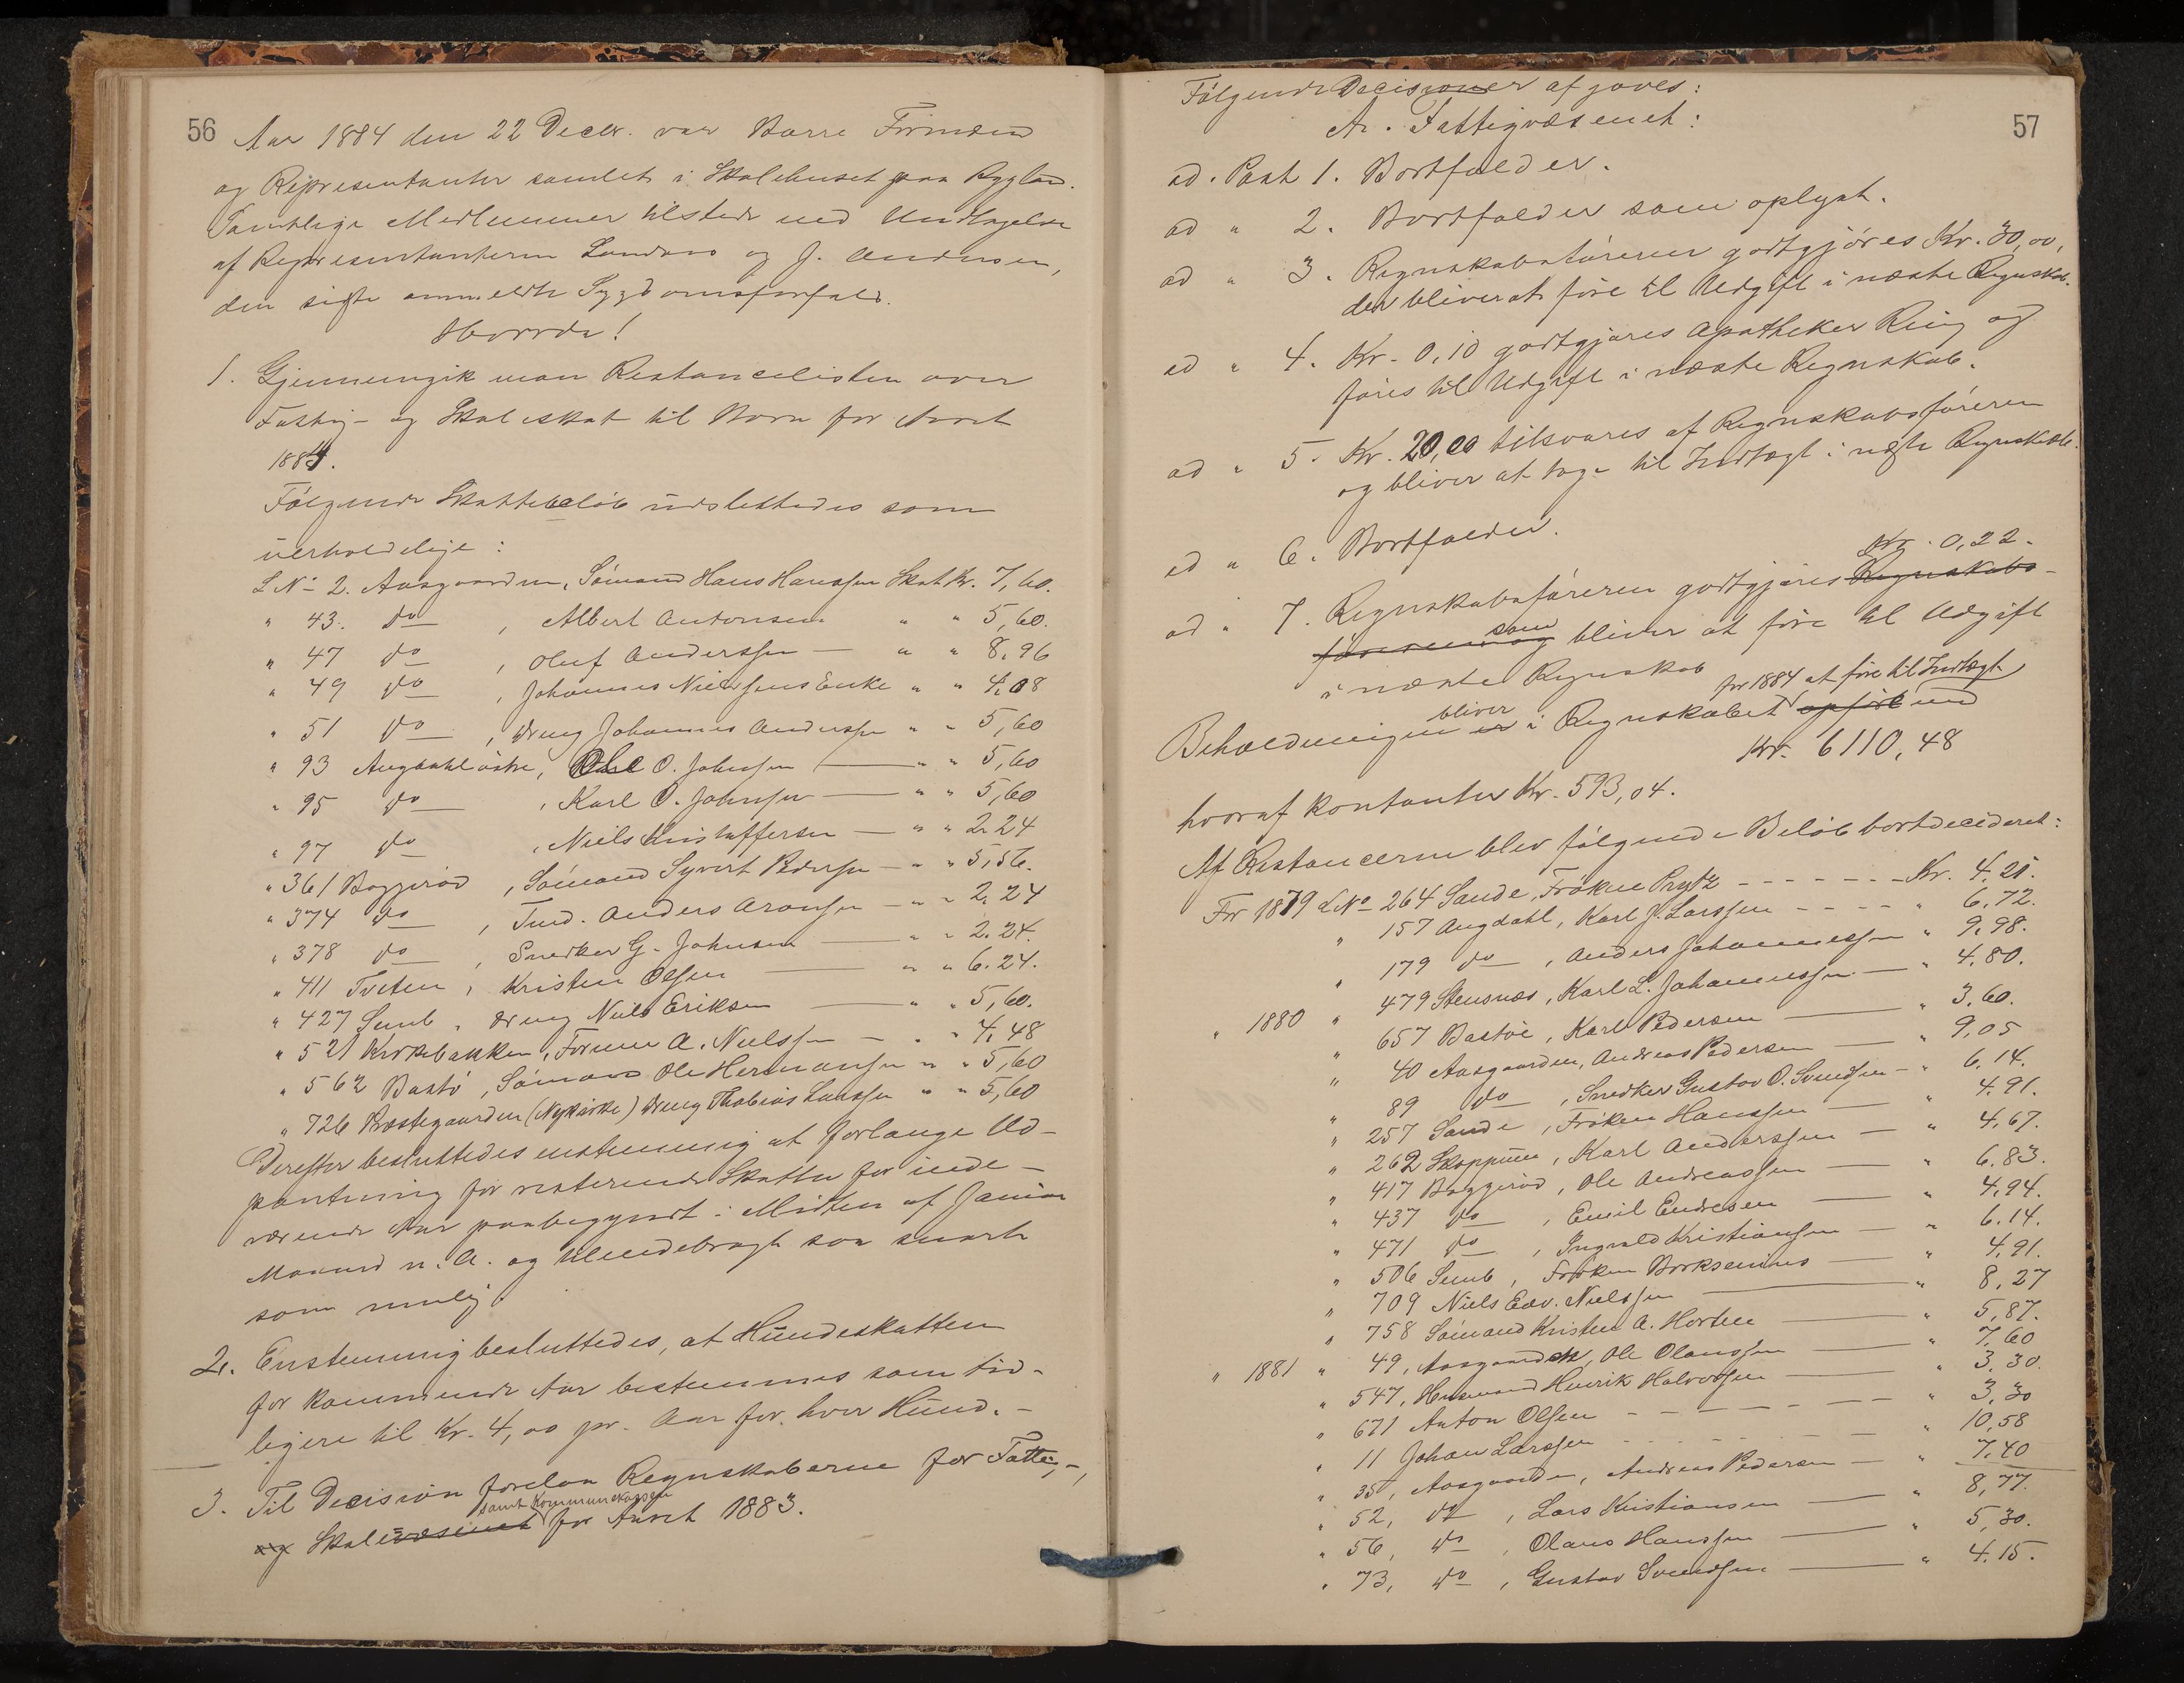 56
Aar 1884 den 22 Decbr. var Borre Formænd
og Repræsentanter samlet i Skolehuset paa Rygland.
Samtlige Medlemmer tilstede med Undtagelse
af Repræsentanterne Sandnes og J. Andersen,
den sidste anmeldte Sygdomsforfald.
Hvorda!
1. Gjennemgik man Restancelisten over
Fattig- og Skoleskat til Borre for Aaret
1884.
Følgende Skattebeløb udslettedes som
uerholdelige:
L No 2. Aasgaarden, Sömand Hans Hanssen Skat Kr. 7,60.
" 43. do , Albert Antonsen " " 5,60.
" 47 do , Oluf Anderssen — " " 8,96
" 49 do , Johannes Nielssens Enke " " 4,08
" 51 do , Dreng Johannes Anderssen " " 5,60
" 93 Augdahl östre, Ole O. Johnsen — " " 5,60
" 95 do , Karl O. Johnsen — " " 5,60
" 97 do , Niels Kristoffersen — " " 2.24
" 361 Baggeröd , Sömand Syvert Pedersen — " " 5,56.
" 374 do , Tind. Anders Aronsen — " " 2,24
" 378 do , Snedker G. Johnsen — " " 2.24.
" 411 Tveten , Kristen Olsen — " " 6.24.
" 427 Semb , Dreng Niels Eriksen — " " 5,60.
" 521 Kirkebakken, Former A. Nielssen — " " 4,48
" 562 Bastö , Sömand Ole Hermansen " " 5,60
" 726 Præstegaarden (Nykirke) Dreng Thobias Larssen " " 5,60
Derefter besluttedes enstemmig at forlange Ud-
pantning for resterende Skatter for inde-
værende Aar paabegyndt i Midten af Januar
Maaned n. A. og tilendebragt saa snart
som mulig.
2. Enstemmig besluttedes, at Hundeskatten
for kommende Aar bestemmes som tid-
ligere til Kr. 4,00 pr. Aar for hver Hund. -
3. Til Decision forelaa Regnskaberne for Fattig-,
samt Kommunekassen
og Skolevæsenet for Aaret 1883.
57
Følgende Decisioner afgaves:
A. Fattigvæsenet:
ad. Post 1. Bortfalder.
ad " 2. Bortfalder som oplyst.
ad " 3. Regnskabsføreren godtgjöres Kr. 30,00,
der bliver at føre til Udgift i næste Regnskab.
ad " 4. Kr. 0,10 godtgjøres Apotheker Ring og
føres til Udgift i næste Regnskab.
ad " 5. Kr. 20,00 tilsvares af Regnskabsføreren
og bliver at tage til Indtægt i næste Regnskab.
ad " 6. Bortfalder.
Kr. 0,22.
ad " 7. Regnskabsføreren godtgjøres Regnskabs-
føreren og som bliver at føre til Udgift
i næste Regnskab
for 1884 at føre til Indtægt
Beholdningen er bliver i Regnskabet opført med
Kr. 6110,48
hvoraf kontanter Kr. 593,04.
Af Restancerne blev følgende Beløb bortdecideret:
For 1879 L No 264 Sande, Frøken Prytz - - - - - - - Kr. 4.21.
" 157 Augdahl, Karl J. Larssen - - - - " 6,72.
" 179 do , Anders Johannessen " 9,98.
" 1880 " 479 Stensnæs, Karl L. Johannessen — " 4.80.
" 657 Bastöe, Karl Pedersen — " 3,60.
" 40 Aasgaarden, Andreas Pedersen — " 9,05
" 89 do , Snedker Gustav O. Svendsen - " 6,14.
" 257 Sande , Frøken Hanssen — " 4.91.
" 262 Skoppum, Karl Anderssen — " 4,67.
" 417 Baggeröd, Ole Andreassen — " 6.83.
" 437 do , Emil Endresen — " 4,94.
" 471 do , Ingvald Kristiansen — " 6.14.
" 506 Semb , Frøken Borksenius — " 4,91.
" 709 Niels Edv. Nielssen — " 8,27
" 758 Sömand Kristen A. Horten — " 5,87.
" 1881 " 49, Aasgaarden, Ole Olaussen — " 7,60
" 547, Husmand Henrik Halvorsen — " 3,30.
" 671 Anton Olsen - - - - - - " 3,30
" 11 Johan Larssen - - - - - " 10,58
" 35, Aasgaarden, Andreas Pedersen — " 7,40
" 52, do , Lars Kristiansen — " 8,77.
" 56, do , Olaus Hanssen — " 5,30.
" 73, do , Gustav Svendsen — " 4.15.